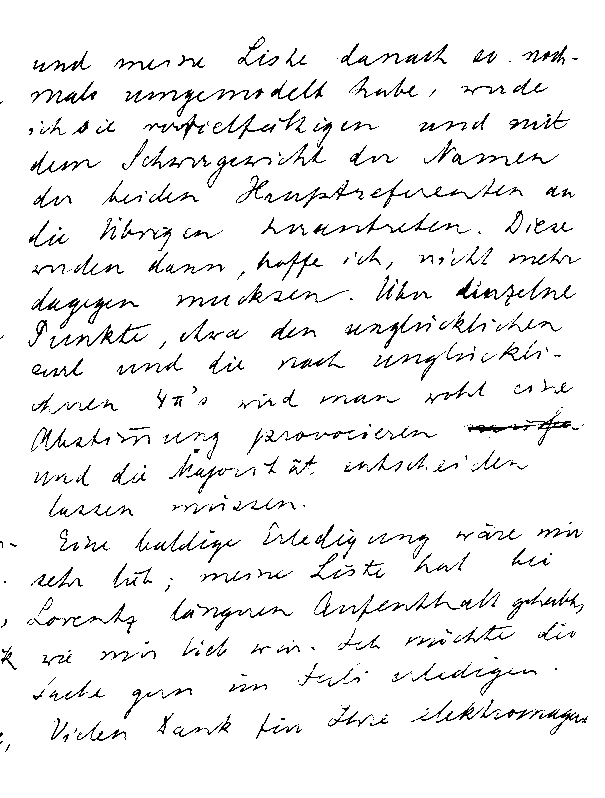 und meine Liste danach ev. noch-
mals umgemodelt habe, werde
ich sie vervielfältigen und mit
dem Schwergewicht der Namen
der beiden Hauptreferenten an
die Übrigen herantreten. Diese
werden dann, hoffe ich, nicht mehr
dagegen mucksen. Über einzelne
Punkte, etwa den unglücklichen
curl und die noch unglückli-
cheren 4π's wird man wohl eine
Abstim̄ung provocieren
und die Majorität entscheiden
lassen müssen.
Eine baldige Erledigung wäre mir
sehr lieb; meine Liste hat bei
Lorentz längeren Aufenthalt gehabt,
wie mir lieb war. Ich möchte die
Sache gern im Juli erledigen.
Vielen Dank für Ihre elektromagn